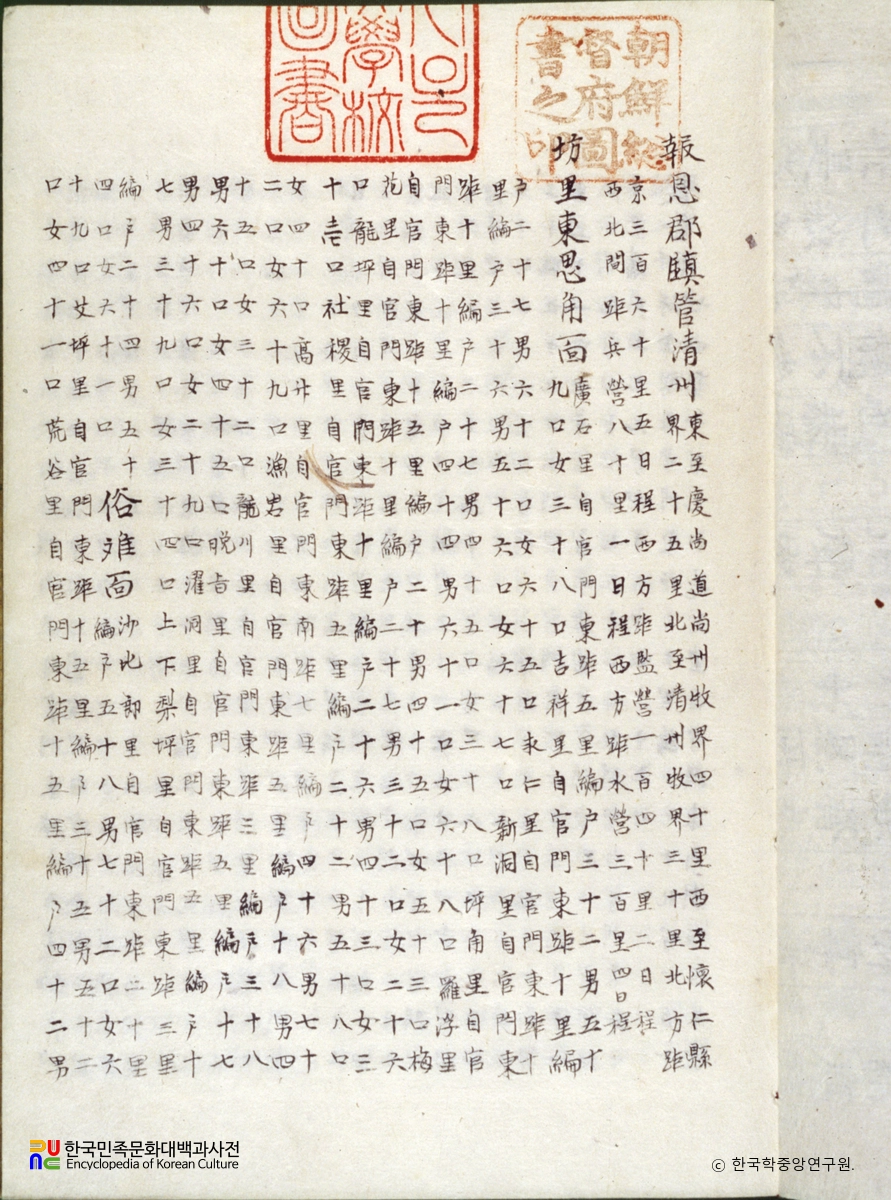 朝鮮總
督府圖
書之印
學校
圖書
報恩郡鎭管清州
東至慶尚道尚州牧界四十里西至懷仁縣
界二十五里北至清州牧界三十里北方距
京三百六十里五日程西方距監營一百四十里二日程
西北間距兵營八十里一日程西方距水營三百里四日程
坊里東思角面
廣石里自官門東距五里編户三十二男五十
九口女三十八口吉祥里自官門東距十里編
户二十七男六十二口女六十五口求仁里自官門東距十
里編户三十六男五十六口女六十七口新洞里自官門東
距十里編户二十七男四十五口女三十八口坪角里自官
門東距十里編户四十四男六十一口女六十八口羅浮里
自官門東距十五里編户二十男四十五口女五十三口梅
花里自官門東距十里編户二十七男三十二口女二十六
口龍坪里自官門東距十里編户二十六男四十三口女三
十壱口社稷里自官門東距五里編户二十二男五十八口
女四十口高升里自官門東南距七里編户四十六男七十
二口女六十九口漁岩里自官門東距五里編户十八男四
十五口女三十二口龍川里自官門東距三里編户三十八
男六十口女四十五口晩旨里自官門東距五里編户十七
男四十六口女二十九口濯洞里自官門東距五里編户十
七男三十九口女三十四口上下梨坪里自官門東距三里
編户二十四男五十
四口女六十一口
俗难面
沙比訥里自官門東距二十里
編户五十八男七十二口女六
十九口丈坪里自官門東距十五里編户三十五男五十二
口女四十一口荒谷里自官門東距十五里編户四十二男
한국민족문화대백과사전
Encyclopedia of Korean Culture
ⓒ 한국학중앙연구원.